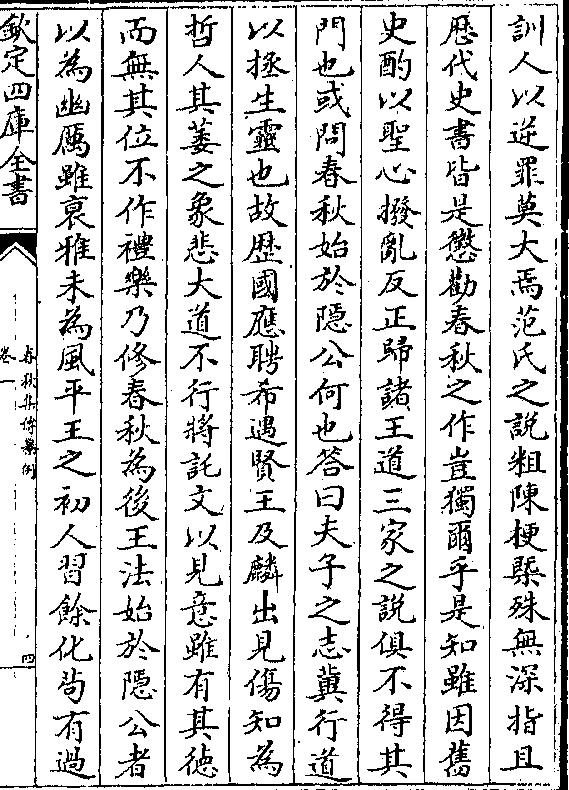 訓人以逆罪莫大焉范氏之說粗陳梗槩殊無深指且
歷代史書皆是懲勸春秋之作豈獨爾乎是知雖因舊
史酌以聖心撥亂反正歸諸王道三家之說俱不得其
門也或問春秋始於隱公何也答曰夫子之志冀行道
以拯生靈也故歷國應聘希遇賢王及麟出見傷知為
哲人其萎之象悲大道不行將託文以見意雖有其徳
而無其位不作禮樂乃修春秋為後王法始於隱公者
以為幽厲雖衰雅未為風平王之初人習餘化尚有過
欽定四庫全書
春秋集傳纂例
卷一
四